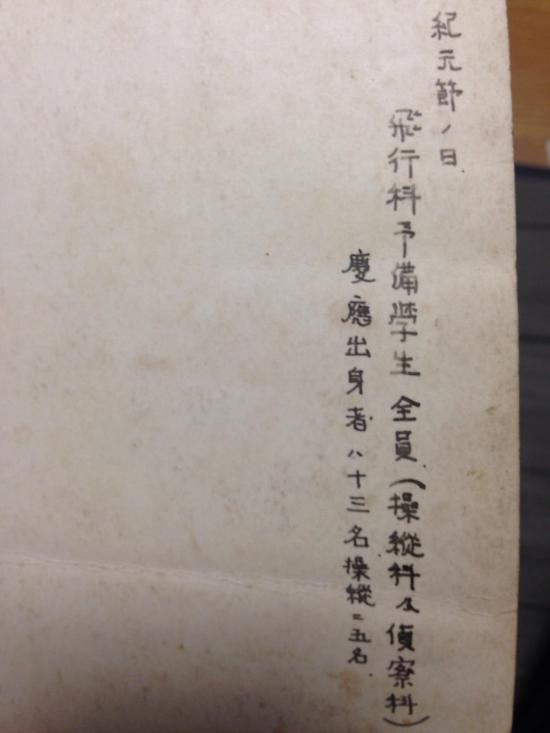 紀元節ノ日
飛行科予備學生全員(操縦科及偵察科)
慶應出身者ハ十三名操縦ニ五名